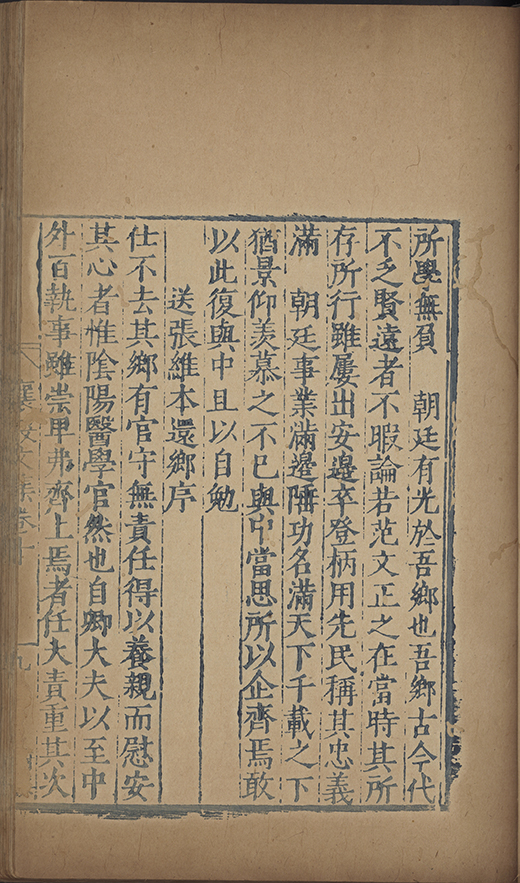 所學無負　朝廷有光於吾鄉也吾鄉古今代
不乏賢遠者不暇論若范文正之在當時其所
存所行雖屢出安邊卒登柄用先民稱其忠義
滿　朝廷事業滿邊陲功名滿天下千載之下
猶景仰羨慕之不已與中當思所以企齊焉敢
以此復與中且以自勉
送張維本還鄉序
仕不去其鄉有官守無責任得以養親而慰安
其心者惟陰陽醫學官然也自卿大夫以至中
外百執事雖崇甲弗齊上焉者任大責重其次
襄毅文集卷十
九